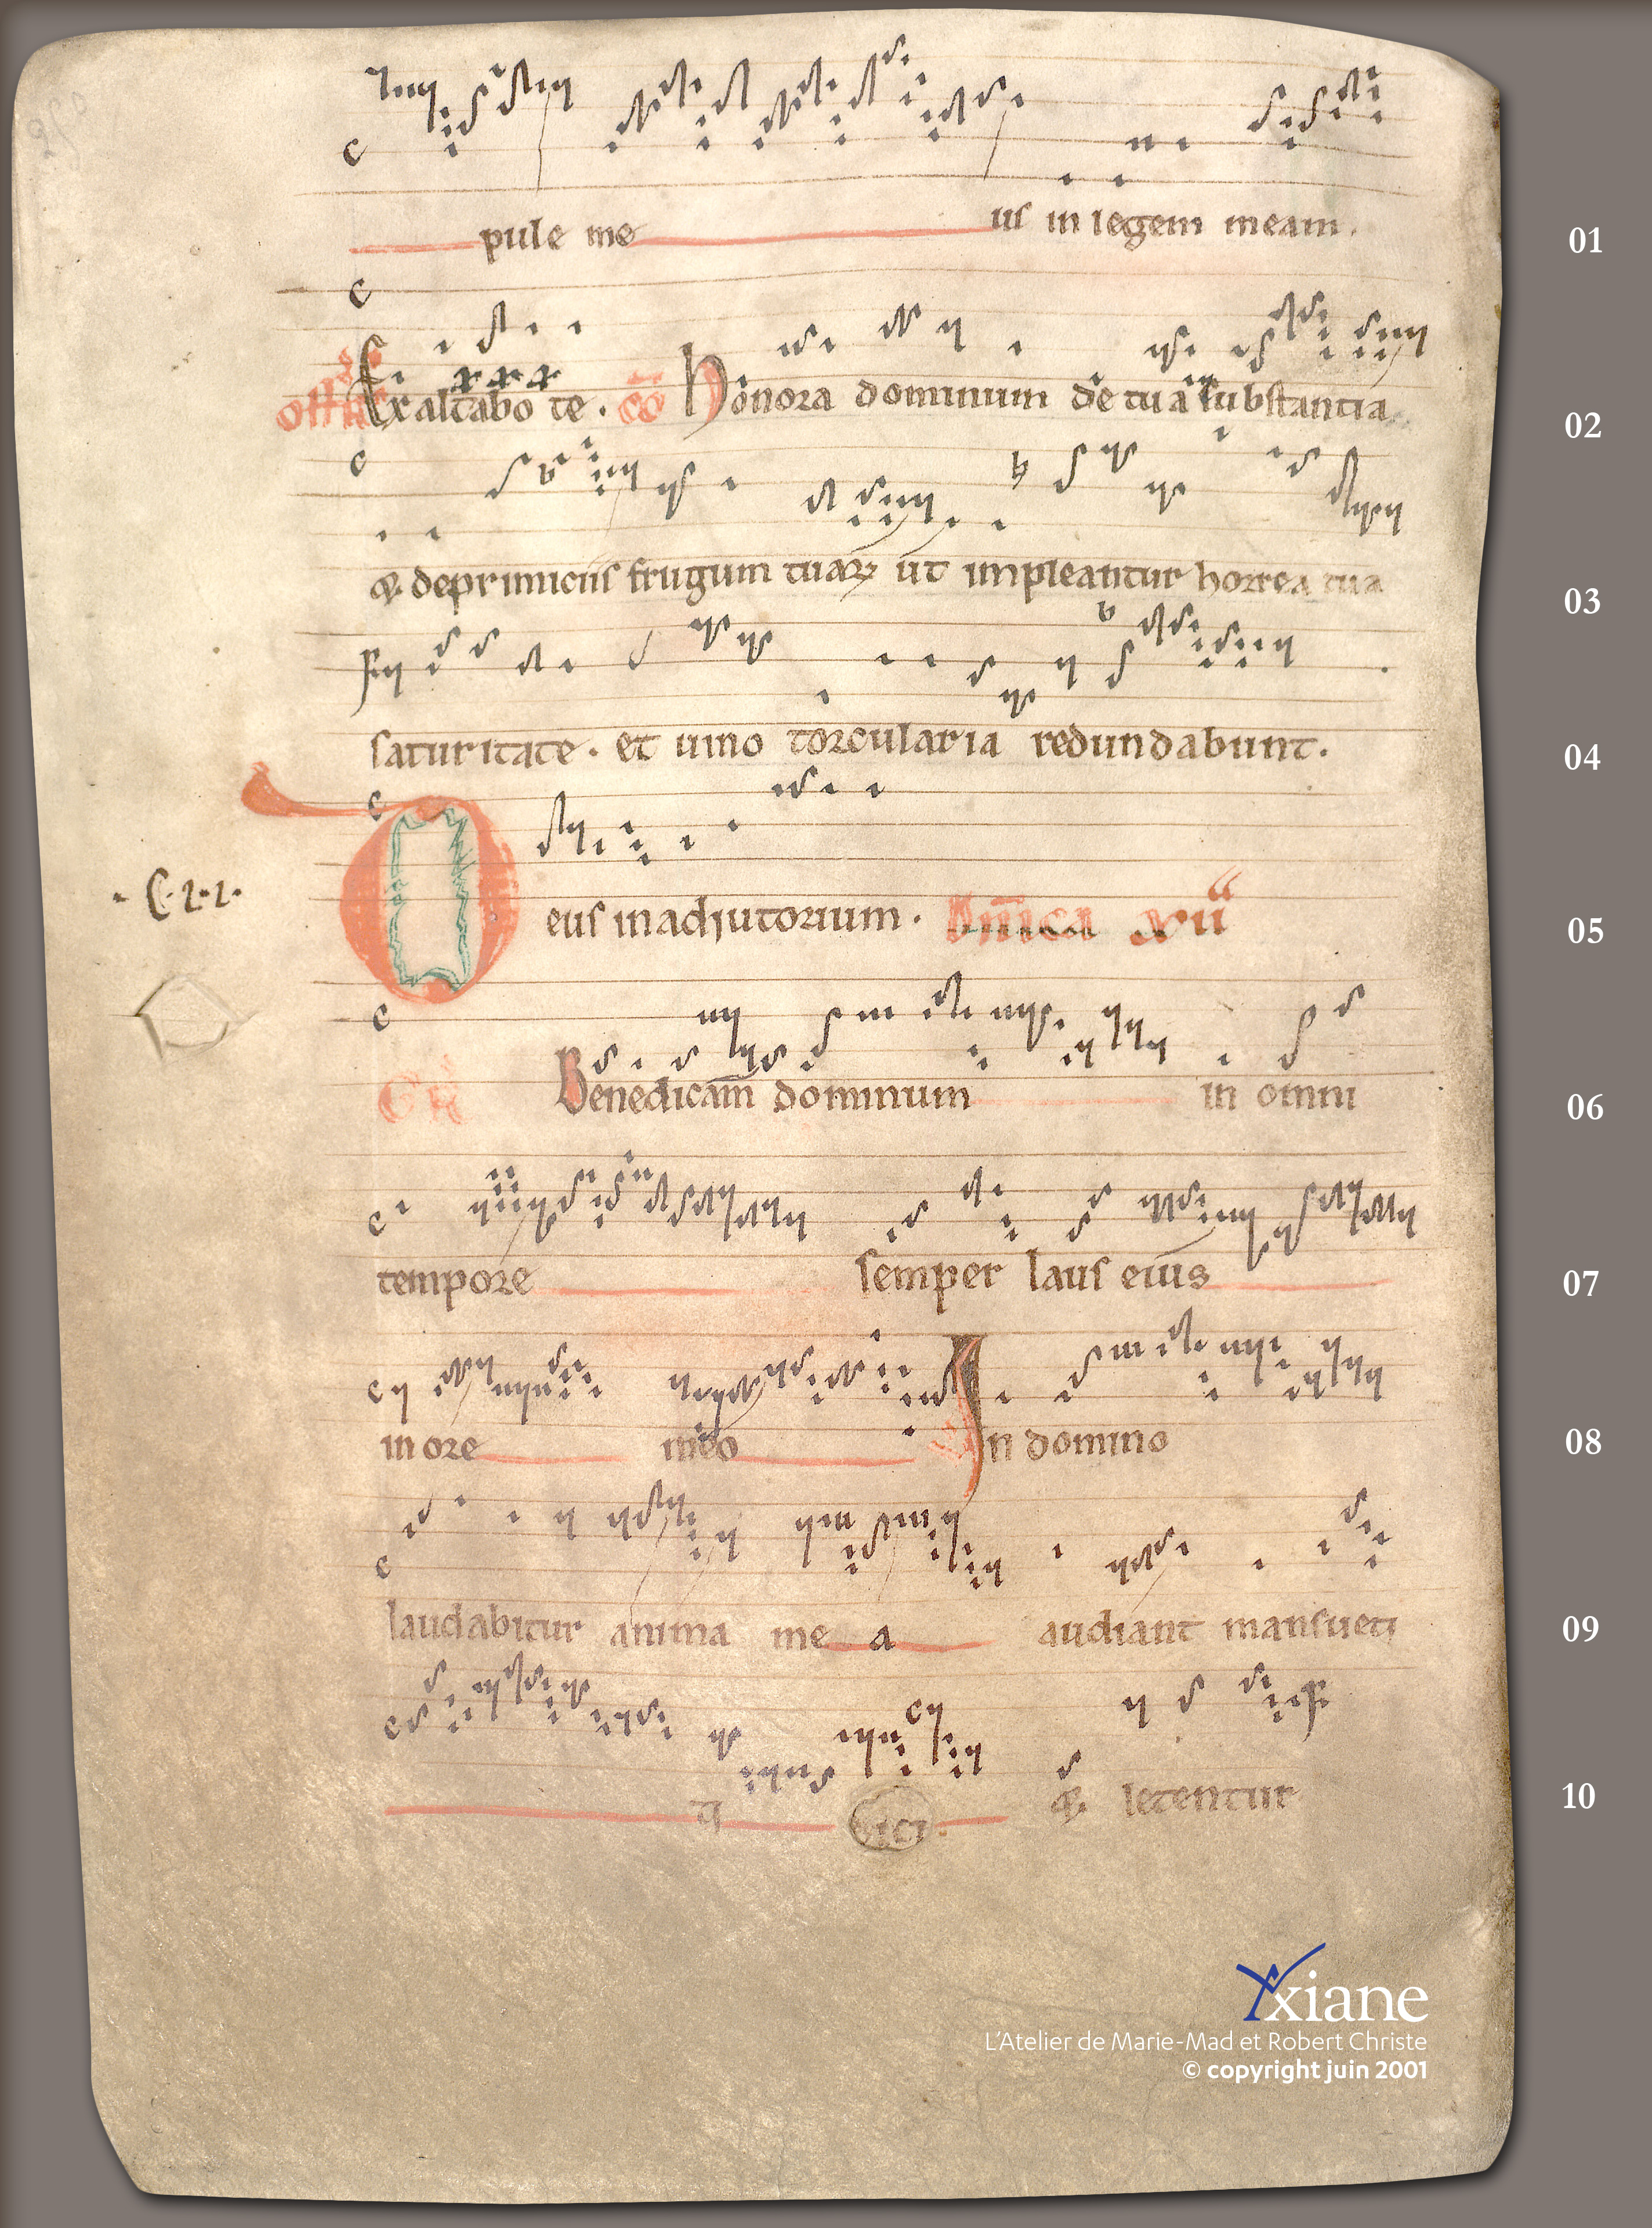 pule me us in legem meam. 01
Exaltabo te. co Honora dominum de tua substantia 02
q; deprimiciis frugum tuarꝝ ut impleantur horrea tua 03
saturitate. et uino torcularia redundabunt. 04
.C.2.2.
Deus in adiutorium. Dn̄ica xii 05
GR Benedicam dominum in omni 06
tempore semper laus eius 07
in ore meo In domino 08
laudabitur anima me a audiant mansueti 09
q; letentur 10
Yxiane
L'Atelier de Marie-Mad et Robert Christe
© copyright juin 2001